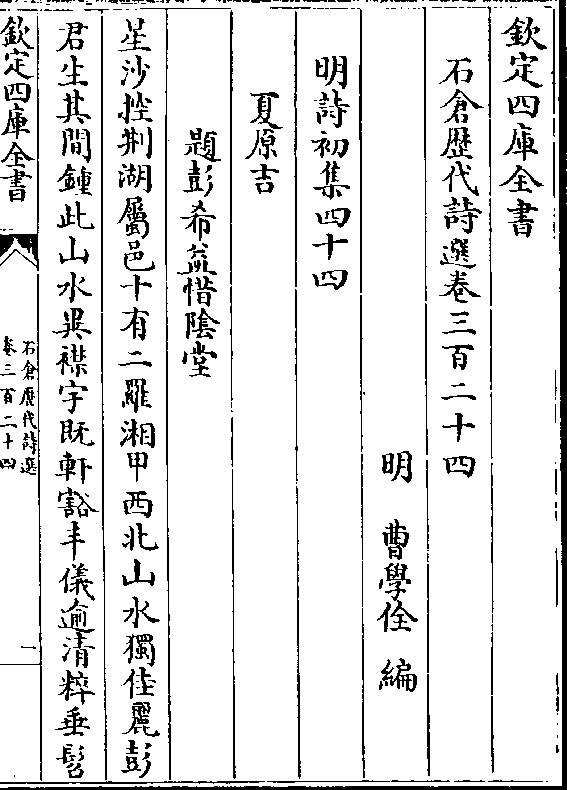 欽定四庫全書
石倉歴代詩選卷三百二十四
明　曹學佺　編
明詩初集四十四
夏原吉
題彭希益惜陰堂
星沙控荆湖屬邑十有二羅湘甲西北山水獨佳麗彭
君生其間鍾此山水異襟宇既軒豁丰儀逾清粹垂髫
欽定四庫全書
石倉歴代詩選
卷三百二十四
一